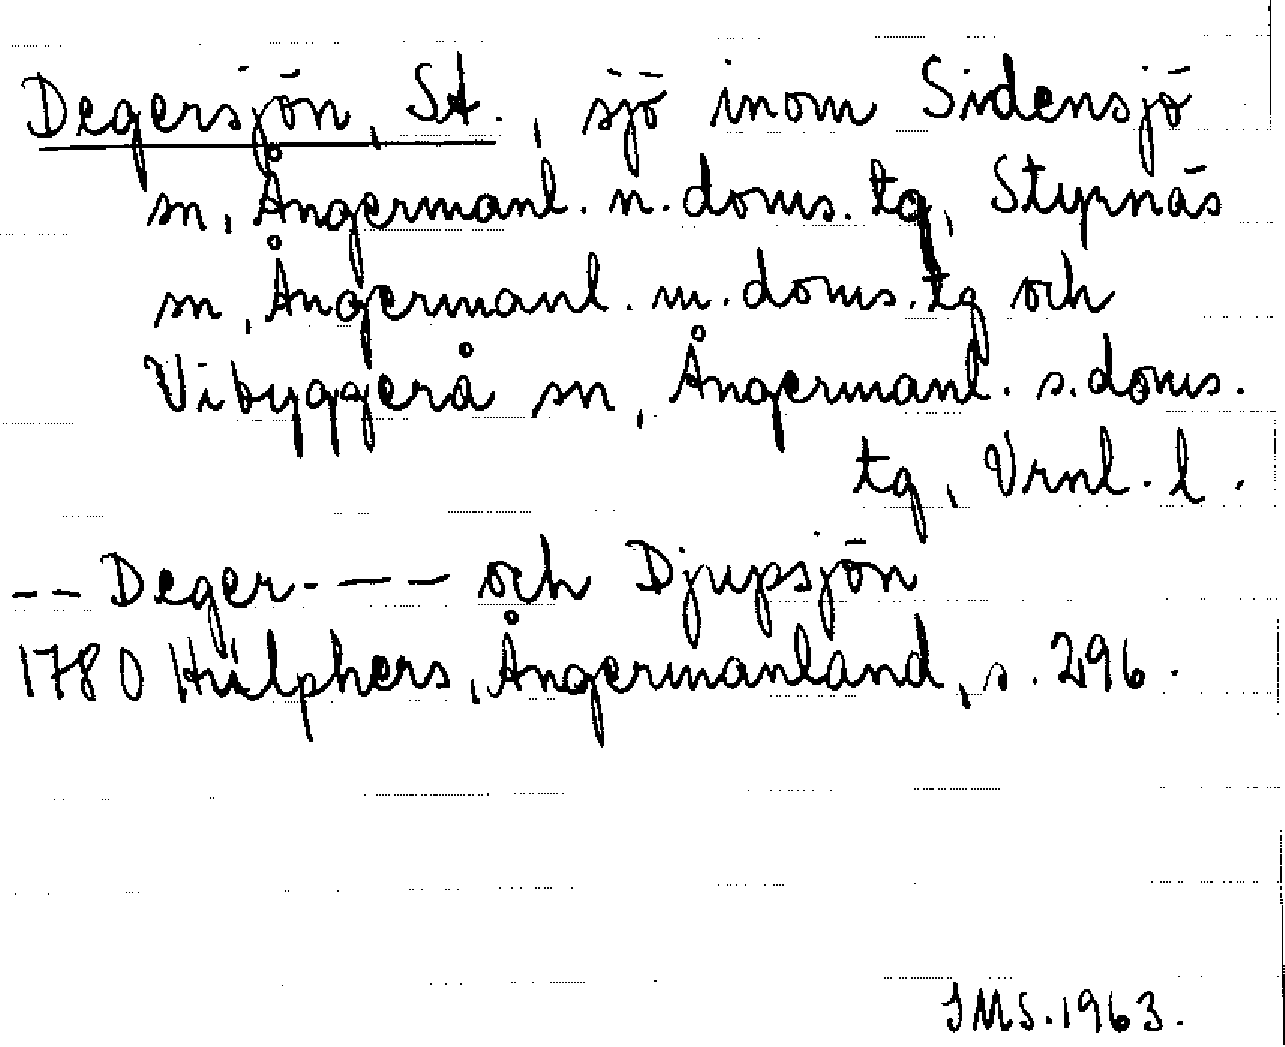 Degersjön, St., sjö inom Sidensjö
sn, Ångermanl. n. doms. tg, Styrnäs
sn, Ångermanl. m. doms. tg och
Vibyggerå sn, Ångermanl. s. doms.
tg, Vrnl. l.
-- Deger- -- och Djupsjön
1780 Hülphers, Ångermanland, s. 296.
JMS. 1963.